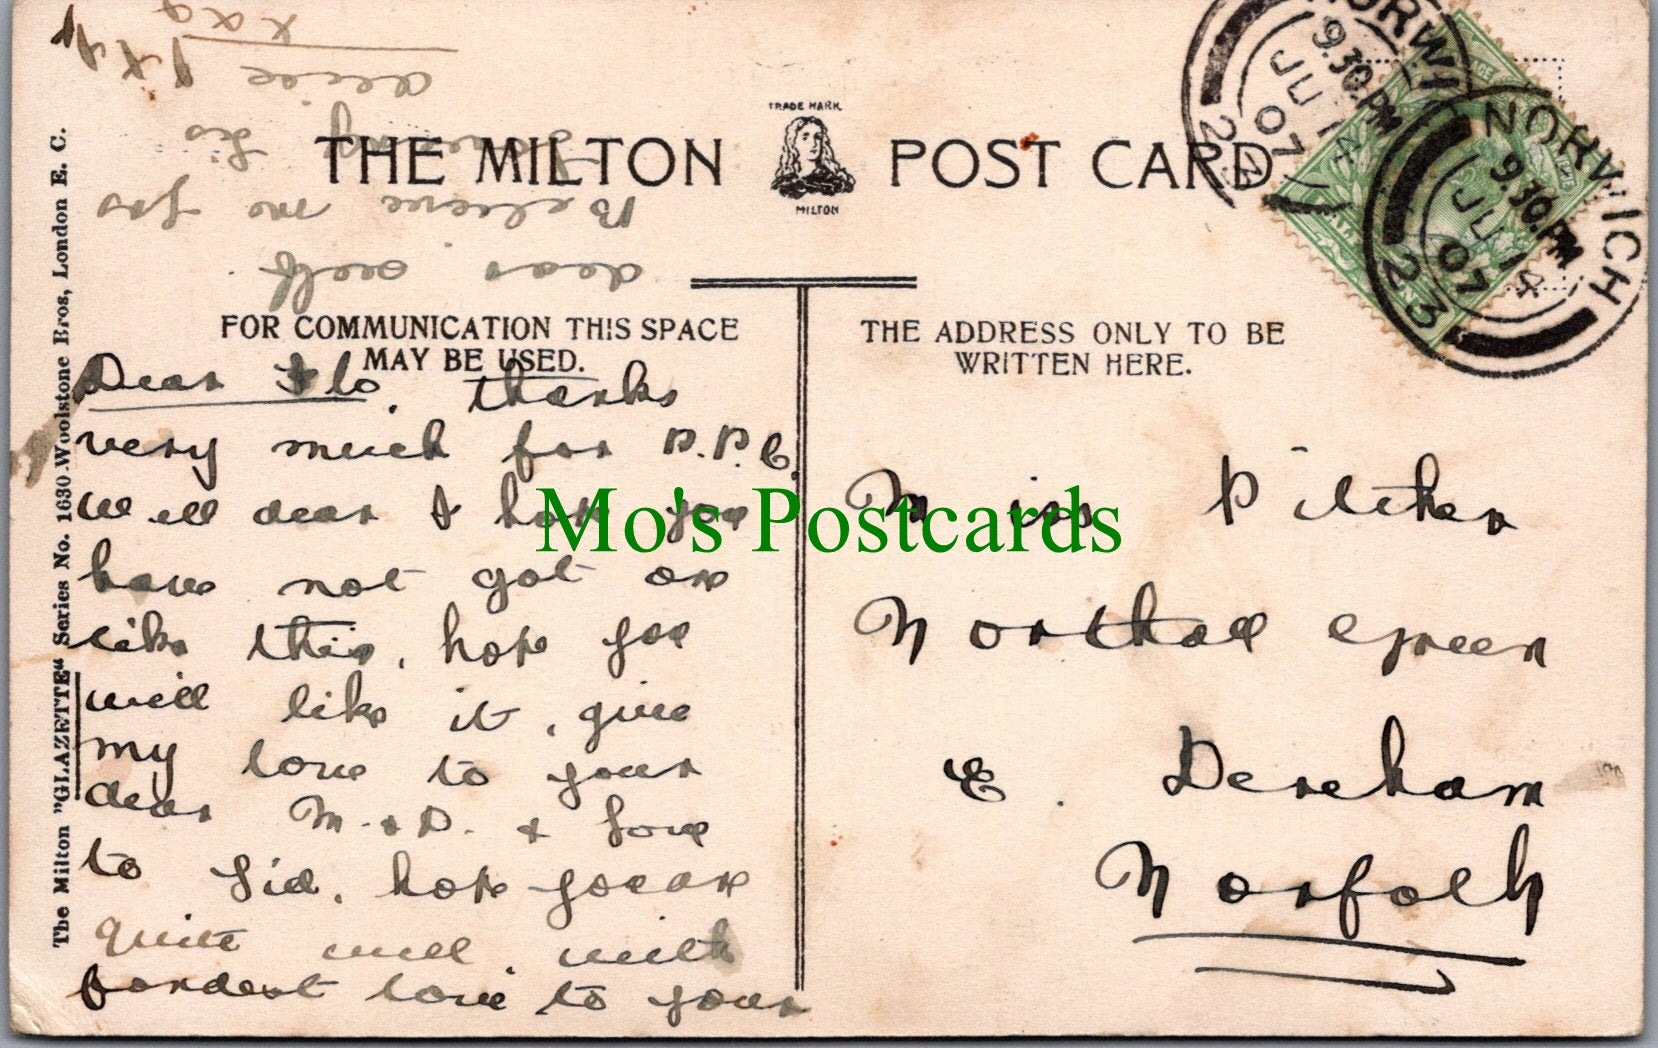 TRADE MARK
THE MILTON POST CARD
MILTON
FOR COMMUNICATION THIS SPACE
MAY BE USED.
THE ADDRESS ONLY TO BE
WRITTEN HERE.
The Milton "GLAZETTE" Series No. 1630 Woolstone Bros, London E. C.
NORWICH
9.30.PM
JU 14
07
23
NORWICH
9.30.PM
JU 14
07
23
Dear Flo, thanks
very much for P.P.C.
Well dear I hope you
have not got one
like this, hope you
will like it, give
my love to your
dear M. & D. & love
to Sid, hope you are
quite well, with
fondest love to your
dear self
Believe me yrs
loving Sis
Alice
Miss Pilcher
Northall Green
E. Dereham
Norfolk
Mo's Postcards